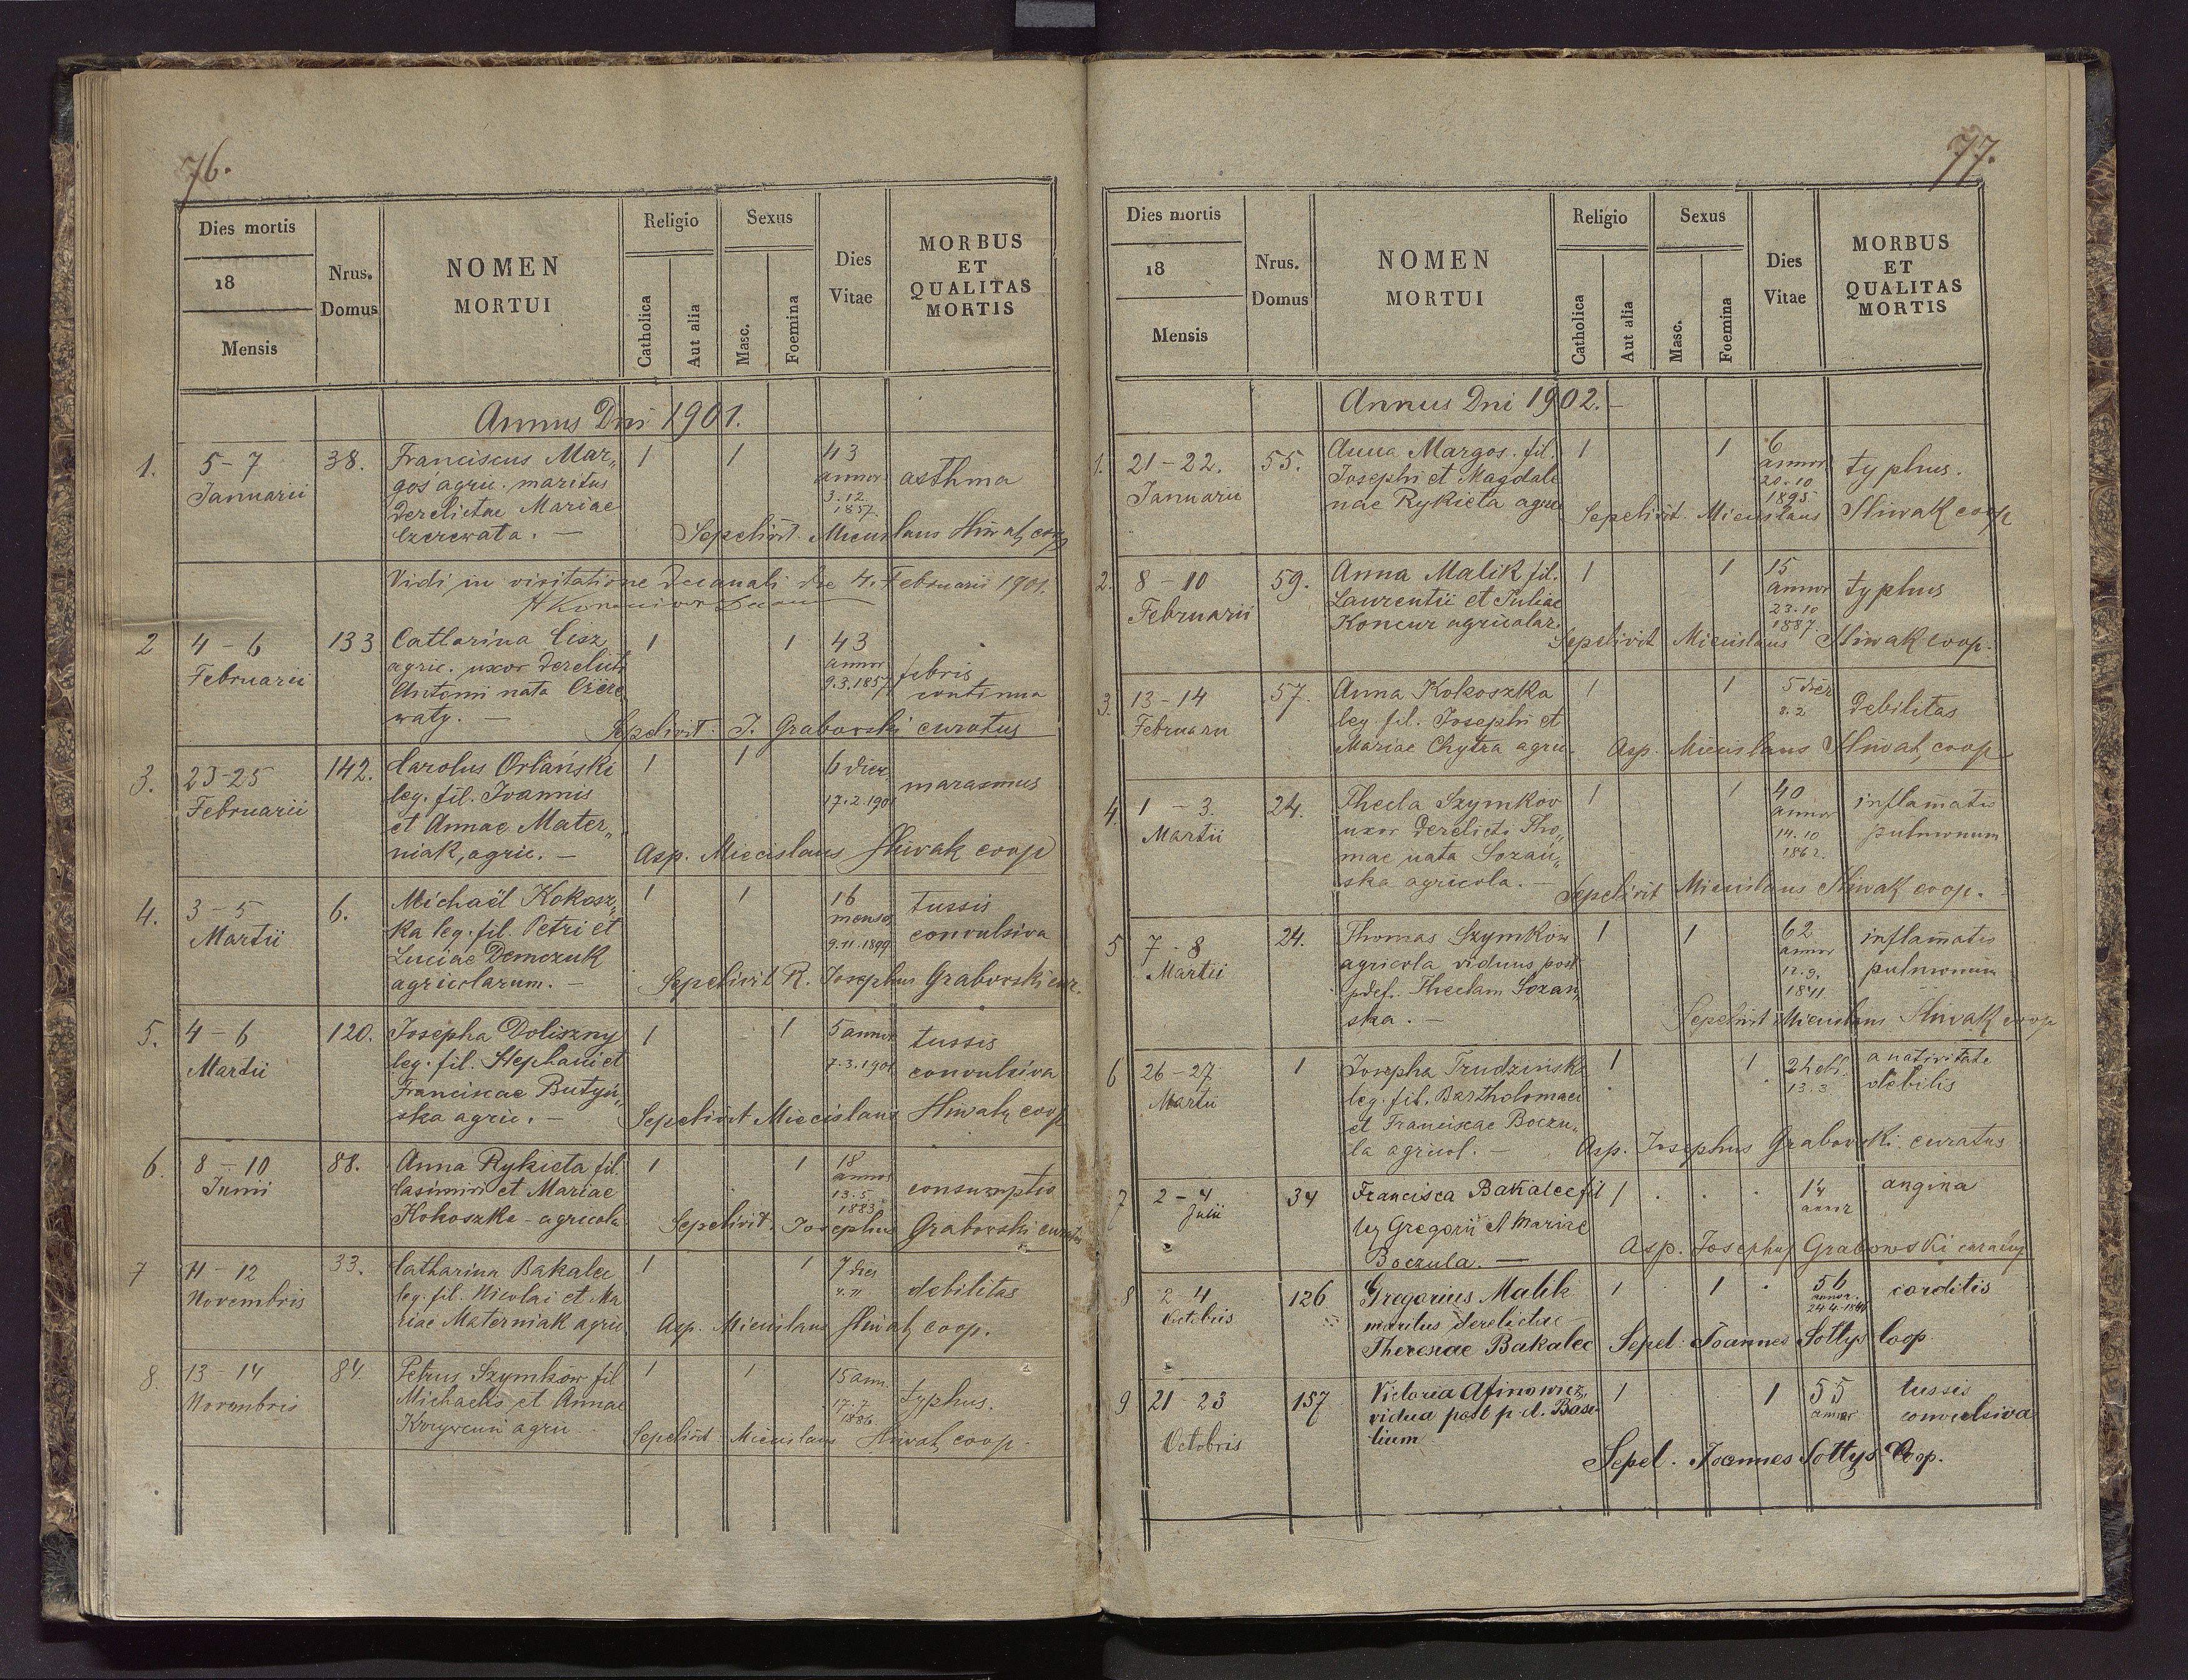 76.
Dies mortis
18
Mensis
Nrus.
Domus
NOMEN
MORTUI
Religio
Catholica
Aut alia
Sexus
Masc.
Foemina
Dies
Vitae
MORBUS
ET
QUALITAS
MORTIS
Annus Dni 1901.
1. 5-7 38. Franciscus Mar„ 1 1 43
Januarii gos agric. maritus annor asthma
derelictae Mariae 3.12
Czerewata. — 1857
Sepelivit Miecislaus Śliwak coop
Vidi in visitatione decanali die 4. Februarii 1901.
2 4-6 133 Catharina Cisz 1 1 43
Februarii agric. uxor derelicti annor febris
Antonii nata Czere 9.3.1857 continua
waty. —
Sepelivit J. Grabowski curatus
3. 23-25 142. Carolus Orlański 1 1 6 dier. marasmus
Februarii leg. fil. Joannis 17.2.1901
et Annae Mater„
niak, agric. — Asp. Miecislaus Śliwak coop
4. 3-5 6. Michaël Kokosz„ 1 1 16 tussis
Martii ka leg. fil. Petri et mens. convulsiva
Luciae Demczuk 9.11.1899
agricolarum. — Sepelivit R. Josephus Grabowski cur.
5. 4-6 120. Josepha Doliszny 1 1 5 annor tussis
Martii leg. fil. Stephani et 7.3.1901 convulsiva
Franciscae Butyń„
ska agric. — Sepelivit Miecislaus Śliwak coop
6. 8-10 88. Anna Rykieta fil. 1 1 18
Junii Casimiri et Mariae annor consumptio
Kokoszka - agricola 13.5
1883
Sepelivit. Josephus Grabowski curatus
7 11-12 33. Catharina Bakalec 1 1 7 dies
Novembris leg. fil. Nicolai et Ma 4.11 debilitas
riae Materniak agric. Asp. Miecislaus Śliwak coop.
8. 13-14 84. Petrus Szymków fil 1 1 15 ann.
Novembris Michaelis et Annae 17.7 typhus.
agric 1886
Sepelivit Miecislaus Śliwak coop.
77.
Dies mortis
18
Mensis
Nrus.
Domus
NOMEN
MORTUI
Religio
Catholica
Aut alia
Sexus
Masc.
Foemina
Dies
Vitae
MORBUS
ET
QUALITAS
MORTIS
Annus Dni 1902. —
1. 21-22. 55. Anna Margos. fil. 1 1 6
Januarii Josephi et Magdale annor typhus.
nae Rykieta agric 20.10
1895
Sepelivit Miecislaus Śliwak coop
2. 8-10 59. Anna Malik fil. 1 1 15
Februarii Laurentii et Juliae annor typhus
Koncur agricolar. 23.10
1887
Sepelivit Miecislaus Śliwak coop.
3. 13-14 57. Anna Kokoszka 1 1 5 dier
Februarii leg. fil. Josephi et 8.2 debilitas
Mariae Chytra agric. Asp. Miecislaus Śliwak coop
4. 1-3. 24. Thecla Szymków 1 1 40 inflamatio
Martii uxor derelicti Tho„ annor pulmonum
mae nata Sozań„ 14.10
ska agricola. — 1862.
Sepelivit Miecislaus Śliwak coop.
5 7-8 24. Thomas Szymków 1 1 62 inflamatio
Martii agricola viduus post annor pulmonum
pdef. Theclam Sozań„ 12.9.
ska. — 1841
Sepelivit Miecislaus Śliwak coop
6 26-27 1 Josepha Trudzińska 1 1 a nativitate
Martii leg. fil. Bartholomaei 13.3 debilis
et Franciscae Boczu„
la agricol. — Asp. Josephus Grabowski. curatus
7 2-4 34 Francisca Bakalec fil 1 14 angina
Julii leg Gregorii et Mariae annor
Boczula. — Asp. Josephus Grabowski curatus
8 2 4 126 Gregorius Malik 1 1 56 carditis
Octobris maritus derelictae annor.
Theresiae Bakalec Sepel. Joannes Sołtys Coop.
9 21-23 157 Victoria Afinowicz 1 1 55 tussis
Octobris vidua post p. d. Basi annor convulsiva
lium
Sepel. Joannes Sołtys Coop.